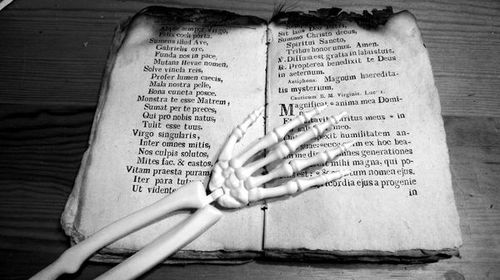 semper tu,
Felix cœli porta.
Sumens illud Ave,
Gabrielis ore,
Funda nos in pace,
Mutans Hevæ nomen.
Solve vincla reis,
Profer lumen cæcis,
Mala nostra pelle,
Bona cuncta posce.
Monstra te esse Matrem,
Sumat per te preces,
Qui pro nobis natus
Tulit esse tuus.
Virgo singularis,
Inter omnes mitis,
Nos culpis solutos
Mites fac, & castos.
Vitam præsta puram,
Iter para
Ut videntes
Sit
Summo Christo decus,
Spiritui Sancto,
Tribus honor unus. Amen.
℣. Diffusa est gratia in labiis tuis.
℟. Propterea benedixit te Deus
in æternum.
Antiphona. Magnum hæredita-
tis mysterium.
Canticum B. M. Virginis. Luc. 1.
Magnificat * anima mea Domi-
spiritus meus *
salutari meo.
respexit humilitatem an-
ecce enim ex hoc be-
omnes generationes
mihi magna, qui po-
& sanctum nomen ejus.
ejus a progenie
in